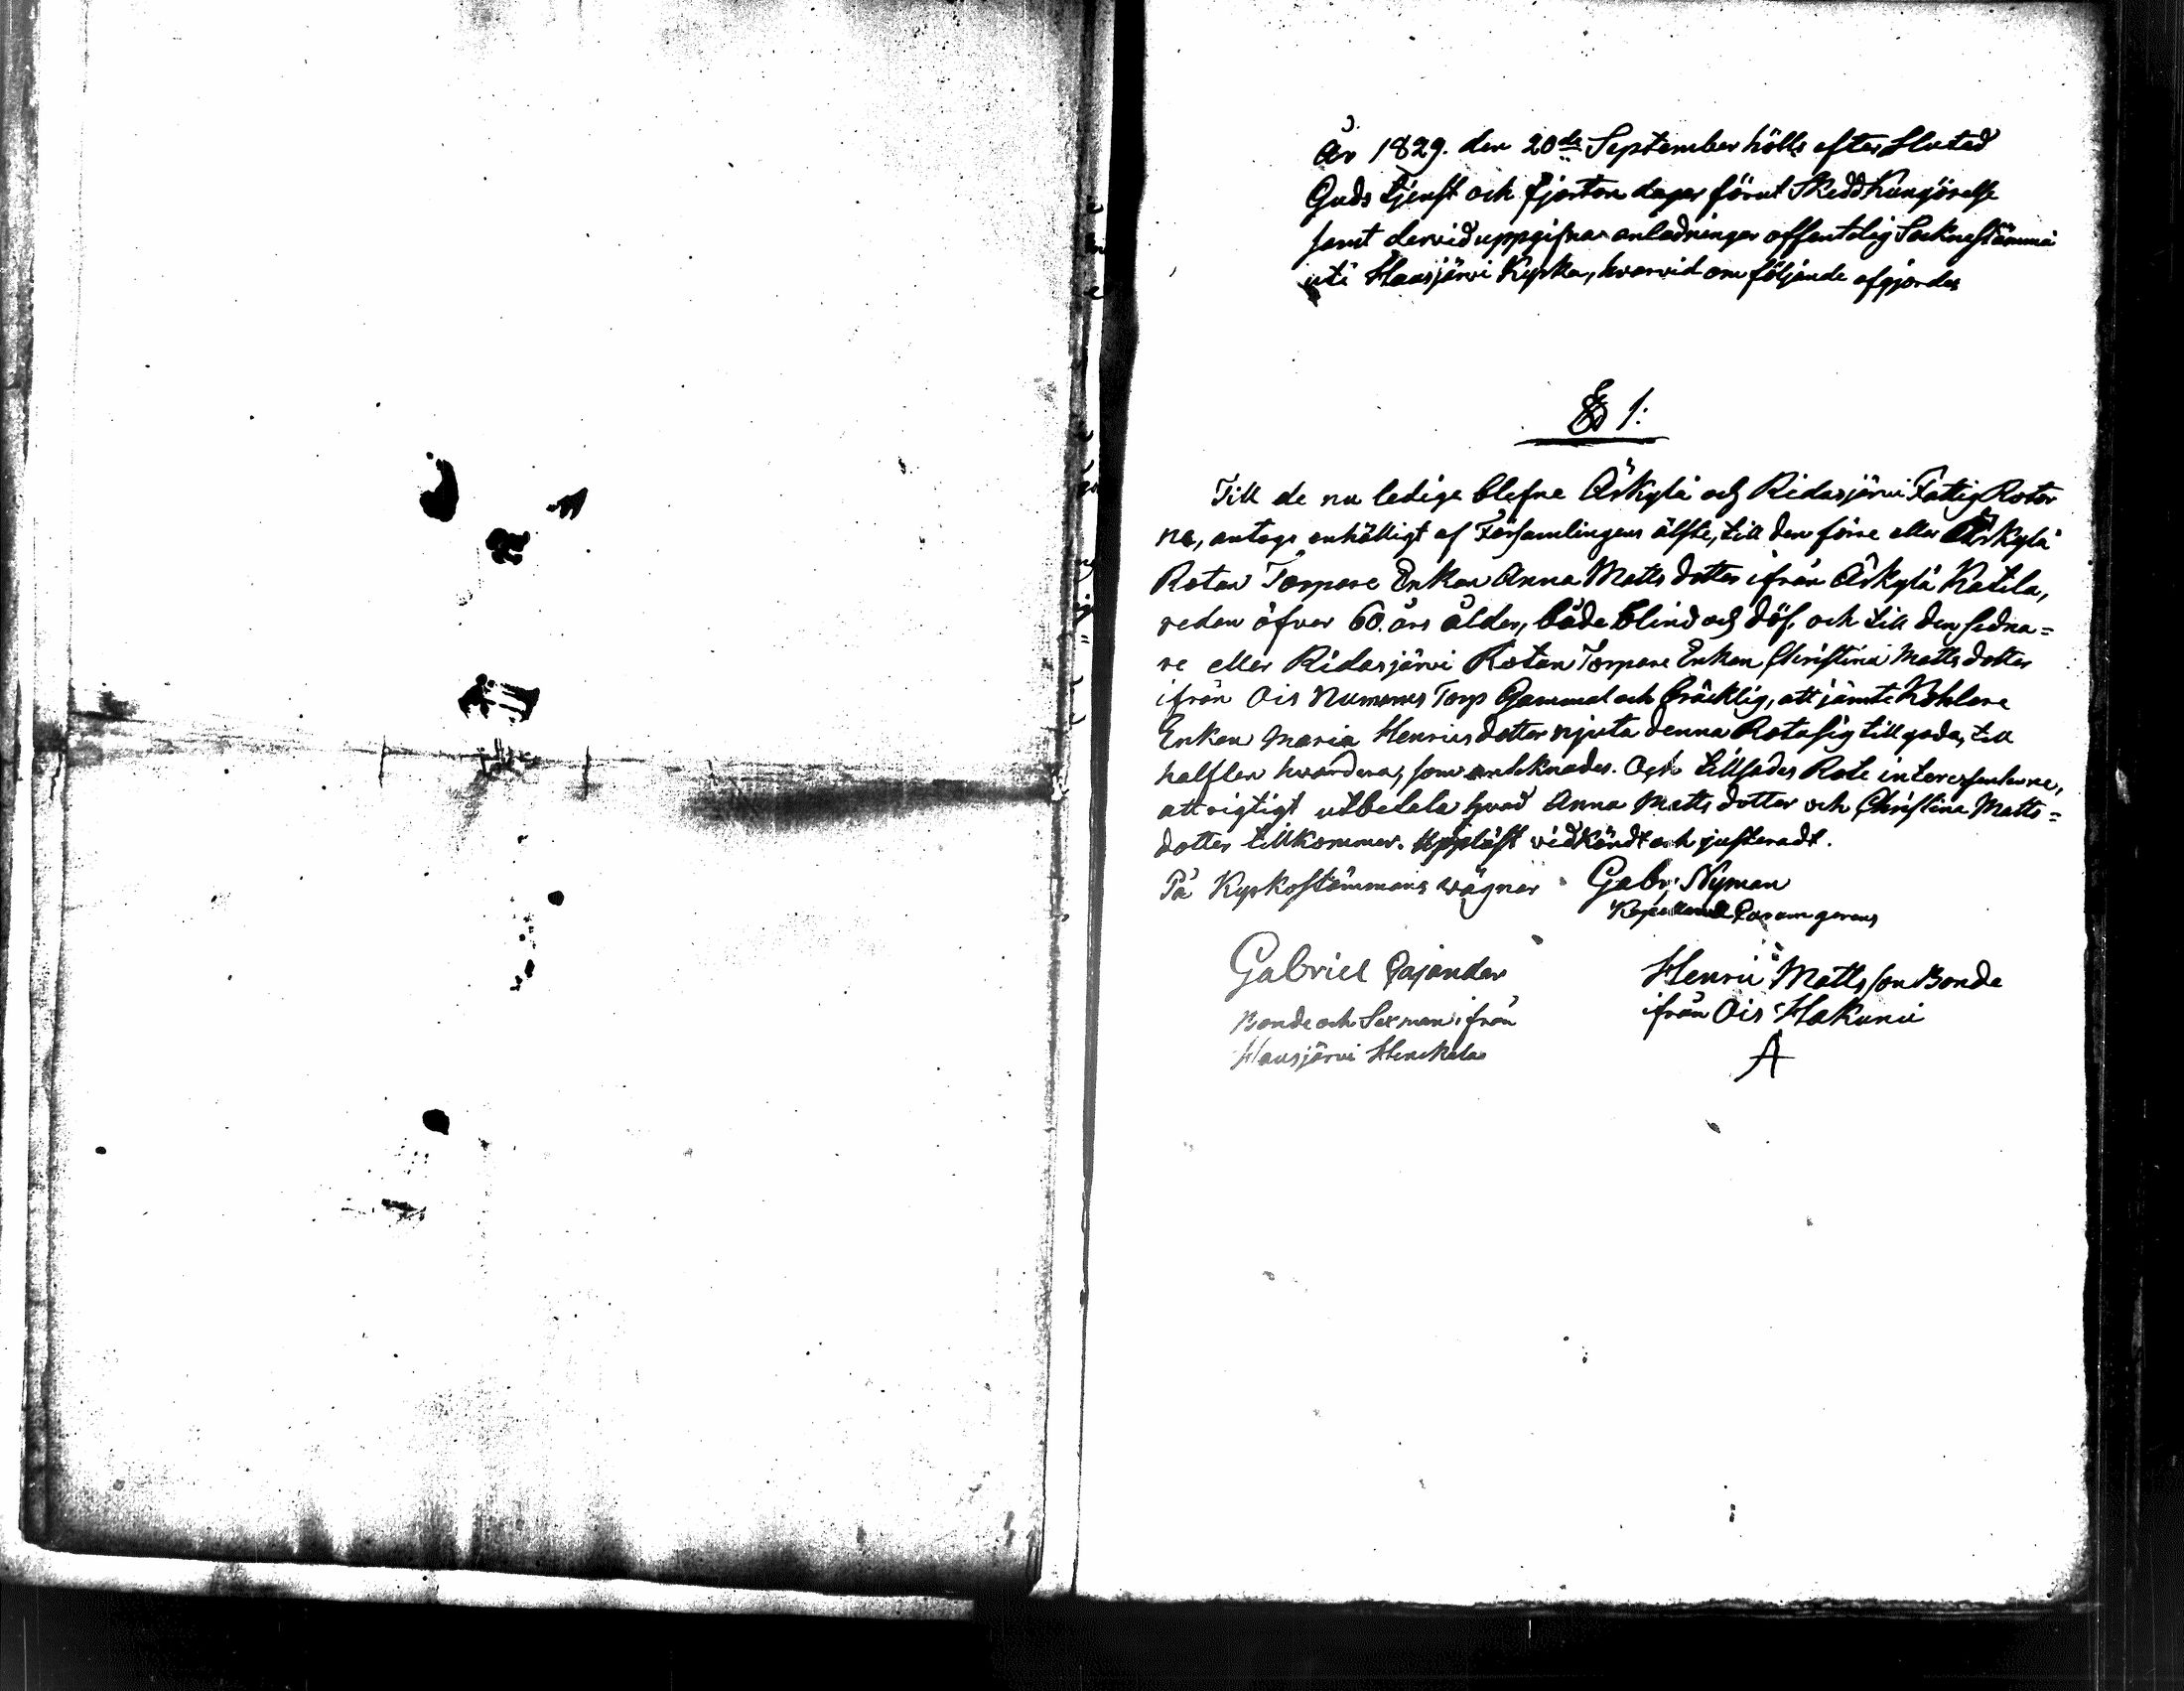 År 1829. den 20de September hölls efter slutad
Guds tjenst och fjorton dagar förut skedd kungörelse
samt dervid uppgifna anledningar offentelig Sockne stämma
uti Hausjärvi Kyrka, hvarvid om följande afgjordes
§ 1:
Till de nu ledige blefne Äskylä och Ridasjärvi Fattig Rotor
ne, antogs enhälligt af Församlingens älste, till den förre eller Äskylä
Rotan Torpare Enkan Anna Matts dotter ifrån Äskylä Katila,
redan öfver 60. års ålder, både blind och döf, och till den sedna=
re eller Ridasjärvi Rotan Torpare Enkan Christina Matts dotter
ifrån Ois Torp Gammal och bräcklig, att jämte Kohlare
Enkan Maria Henricsdotter njuta denna Rota sig till godo, till
halften hvardera, som anteknades. Och tillsades Rote interessenterne,
att rigtigt utbetala hvad Anna Matts dotter och Christina Matts=
dotter tillkommer. Uppläst vidkändt och justeradt.
På Kyrkostämmans wägnar Gabr. Nyman
Gabriel Pajander Henric Matts son Bonde
Bonde och Sexman ifrån ifrån Ois Hakuni
Hausjärvi Heickelä A